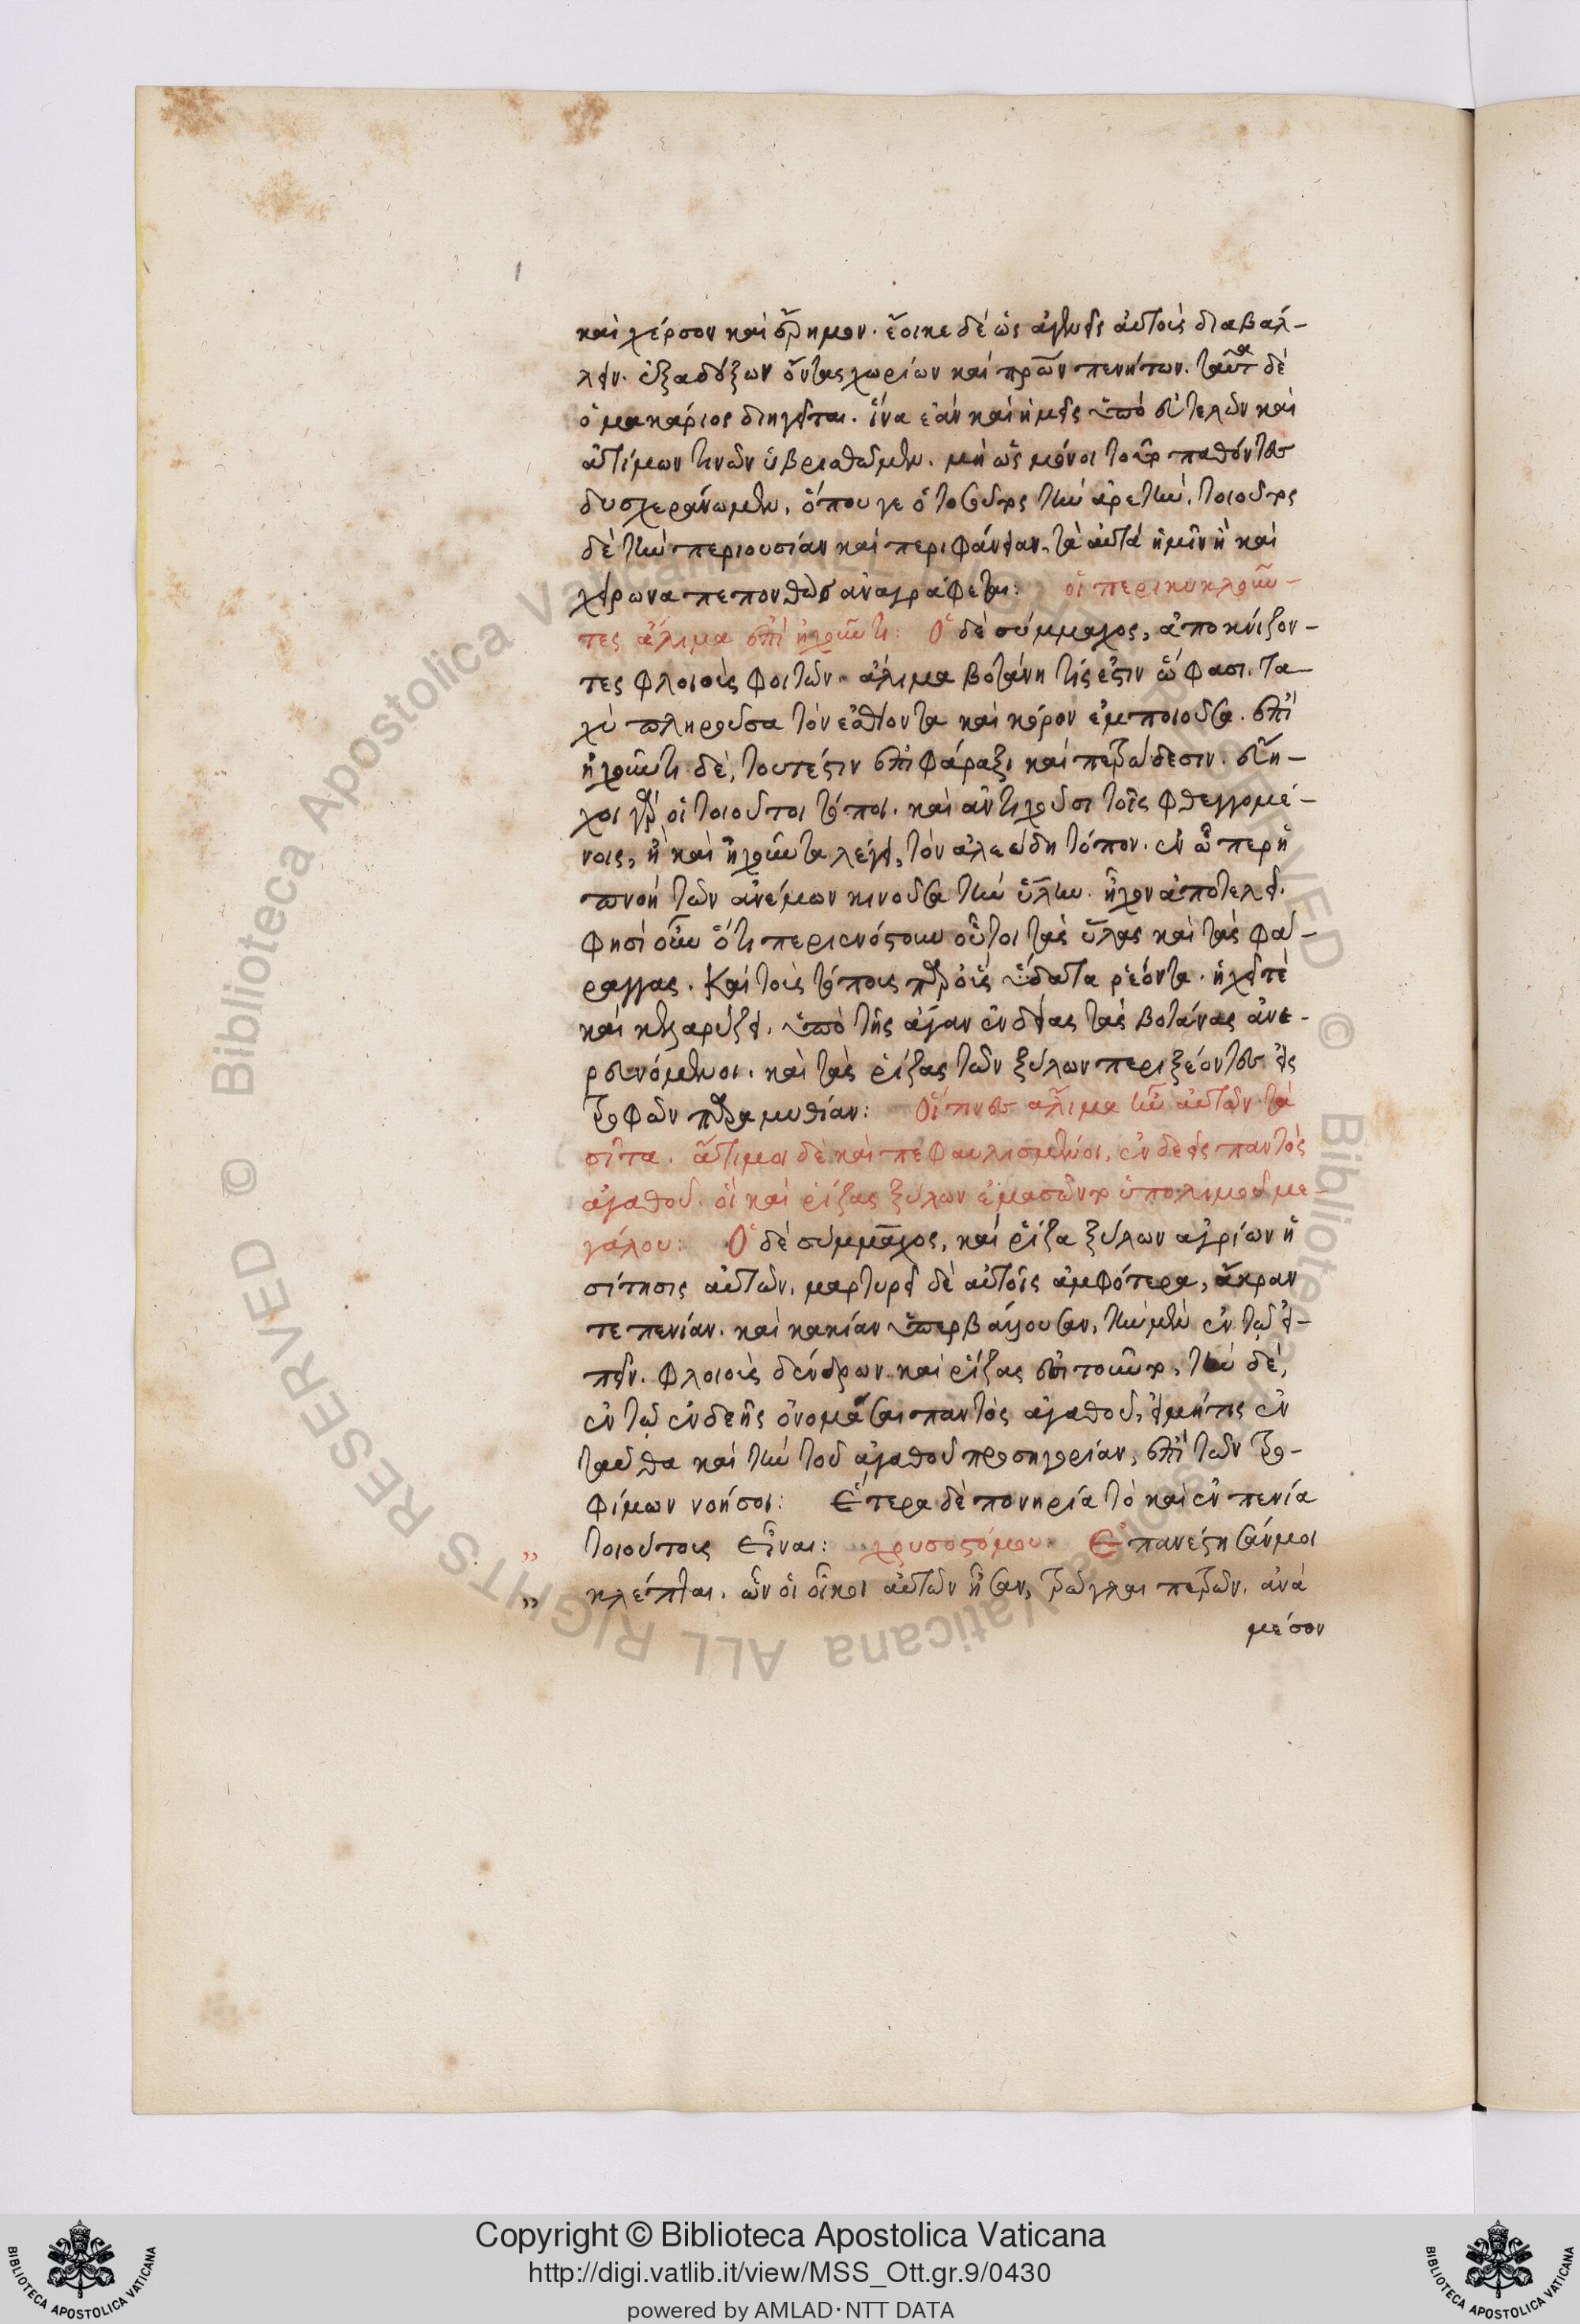 καὶ χέρσον καὶ ἔρημον. ἔοικε δὲ ὡς ἀγενεῖς αὐτοὺς διαβάλ-
λειν. ἐξ ἀδόξων ὄντας χωρίων καὶ πρῶν πενήτων. ταῦτα δὲ
ὁ μακάριος διηγεῖται. ἵνα ἐὰν καὶ ἡμεῖς ὑπὸ εὐτελῶν καὶ
ἀτίμων τινῶν ὑβρισθῶμεν. μὴ ὡς μόνοι τοῦτο παθόντες
δυσχεραίνωμεν, ὅπου γε ὁ τοσοῦτος τὴν ἀρετὴν, τοιοῦτος
δὲ τὴν περιουσίαν καὶ περιφάνειαν, τὰ αὐτὰ ἡμῖν ἢ καὶ
χείρωνα πεπονθὼς ἀναγράφεται: οἱ περικυκλοῦν-
τες ἄλιμα ἐπὶ ἠχοῦντι: Ὁ δὲ σύμμαχος, ἀποκνίζον-
τες φλοιοὺς φυτῶν. ἄλιμα βοτάνη τίς ἐστιν ὥς φασι. τα-
χὺ πληροῦσα τὸν ἐσθίοντα καὶ κόρον ἐμποιοῦσα. ἐπὶ
ἠχοῦντι δὲ, τουτέστιν ἐπὶ φάραξι καὶ πετρώδεσιν. εὔη-
χοι γὰρ οἱ τοιοῦτοι τόποι. καὶ ἀντηχοῦσι τοῖς φθεγγομέ-
νοις, ἢ καὶ ἠχοῦντα λέγει, τὸν ἀλσώδη τόπον. ἐν ᾧ περ ἡ
πνοὴ τῶν ἀνέμων κινοῦσα τὴν ὕλην. ἦχον ἀποτελεῖ.
φησὶ οὖν ὅτι περιενόστουν οὗτοι τὰς ὕλας καὶ τὰς φά-
ραγγας. Καὶ τοὺς τόπους παρ' οἷς ὕδατα ῥέοντα. ἠχεῖ τὲ
καὶ κελαρύζει. ὑπὸ τῆς ἄγαν ἐνδείας τὰς βοτάνας ἀνε-
ρευνόμενοι. καὶ τὰς ῥίζας τῶν ξύλων περιξέοντες εἰς
τροφῶν παραμυθίαν: Οἵτινες ἄλιμα ἦν αὐτῶν τὰ
σῖτα. ἄτιμοι δὲ καὶ πεφαυλισμένοι, ἐνδεεῖς παντὸς
ἀγαθοῦ. οἳ καὶ ῥίζας ξύλων ἐμασῶντο ὑπὸ λιμοῦ με-
γάλου: Ὁ δὲ σύμμαχος, καὶ ῥίζα ξύλων ἀγρίων ἡ
σίτησις αὐτῶν. μαρτυρεῖ δὲ αὐτοῖς ἀμφότερα, ἄκραν
τε πενίαν. καὶ κακίαν ὑπερβαίνουσαν, τὴν μὲν ἐν τῷ εἰ-
πεῖν. φλοιοὺς δένδρων καὶ ῥίζας ἐσιτοῦντο, τὴν δὲ,
ἐν τῷ ἐνδεεῖς ὀνομάσαι παντὸς ἀγαθοῦ, εἰ μή τις ἐν
ταῦθα καὶ τὴν τοῦ ἀγαθοῦ προσηγορίαν, ἐπὶ τῶν τρο-
φίμων νοήσοι: Ἑτέρα δὲ πονηρία τὸ καὶ ἐν πενία
τοιούτους εἶναι: χρυσοστόμου: Ἐπανέστησάν μοι
κλέπται. ὧν οἱ οἶκοι αὐτῶν ἦσαν, τρῶγλαι πετρῶν. ἀνὰ
μέσον
Copyright © Biblioteca Apostolica Vaticana
http://digi.vatlib.it/view/MSS_Ott.gr.9/0430
powered by AMLAD·NTT DATA